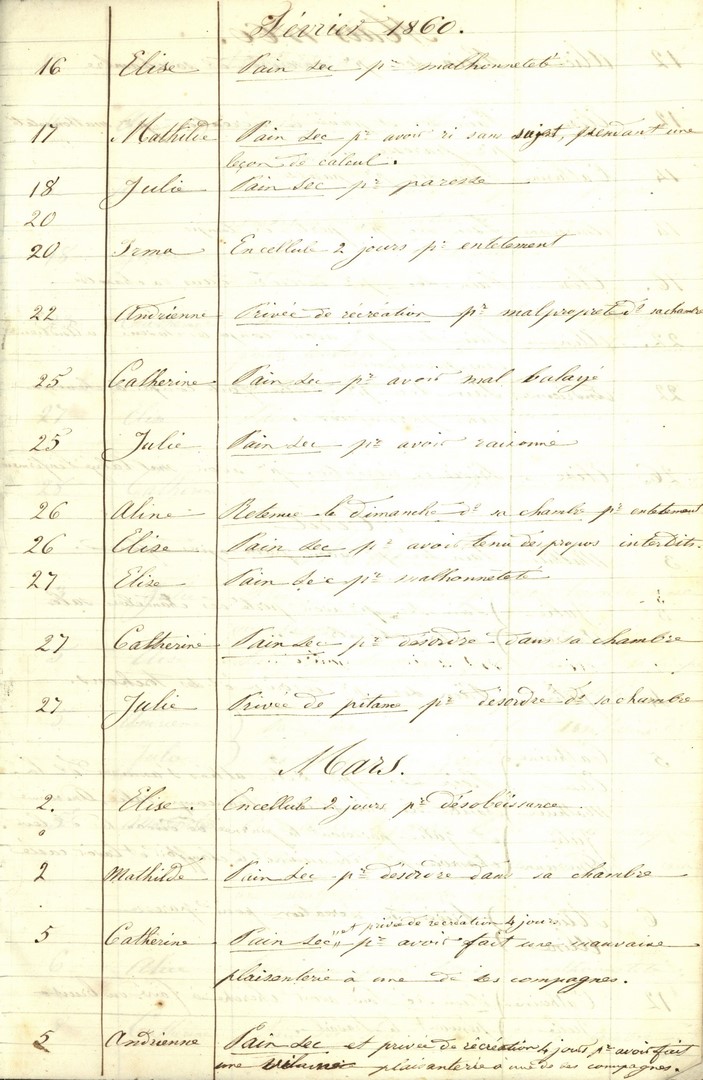 Février 1860.
16 Elise Pain sec pr malhonneteté
17 Mathilde Pain sec pr avoir ri sans sujet, pendant une
leçon de calcul.
18 Julie Pain sec pr paresse
20
20 Irma Encellulé 2 jours pr entetement
22 Andrienne Privée de récréation pr malpropreté ds sa chambre
25 Catherine Pain sec pr avoir mal balayé
25 Julie Pain sec pr avoir raisonné
26 Aline Retenue le dimanche ds sa chambre pr entetement
26 Elise Pain sec pr avoir tenu des propos interdits.
27 Elise Pain sec pr malhonneteté
27 Catherine Pain sec pr désordre dans sa chambre
27 Julie Privée de pitance pr désordre ds sa chambre
Mars.
2. Elise. Encellulé 2 jours pr désobéissance.
2 Mathilde Pain sec pr désordre dans sa chambre
et privée de récréation 4 jours
5 Catherine Pain sec " pr avoir fait une mauvaise
plaisenterie à une de ses compagnes.
5 Andrienne Pain sec et privée de récréation 4 jours pr avoir fait
une vilaine plaisanterie a une de ses compagnes.